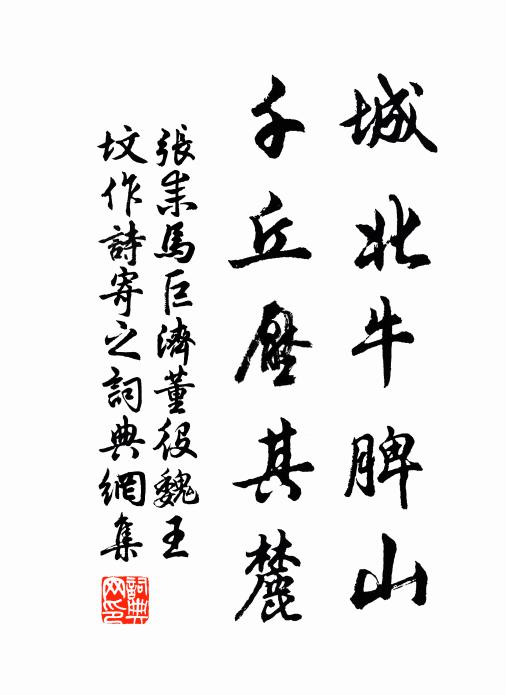 城北牛脾山
千丘壓其麓
張耒馬巨濟董役魏王
墳作詩寄之詞典網集
詞典網印